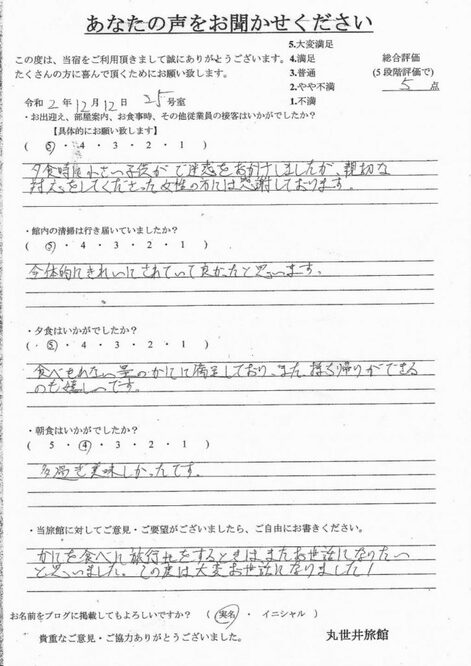 あなたの声をお聞かせください
この度は、当宿をご利用頂きまして誠にありがとうございます。
たくさんの方に喜んで頂くためにお願い致します。
5.大変満足
4.満足
3.普通
2.やや不満
1.不満
総合評価
(5段階評価で)
5 点
令和 2年 12月 12日 25号室
・お出迎え、部屋案内、お食事時、その他従業員の接客はいかがでしたか?
【具体的にお願い致します】
( 5 ・ 4 ・ 3 ・ 2 ・ 1 )
夕食時は小さい子供がご迷惑をおかけしましたが、親切な
対応をしてくださった女性の方には感謝しております。
・館内の清掃は行き届いていましたか?
( 5 ・ 4 ・ 3 ・ 2 ・ 1 )
全体的にきれいにされていて良かったと思います。
・夕食はいかがでしたか?
( 5 ・ 4 ・ 3 ・ 2 ・ 1 )
食べきれない量のかにに満足しており、また、持ち帰りができる
のも嬉しいです。
・朝食はいかがでしたか?
( 5 ・ 4 ・ 3 ・ 2 ・ 1 )
美味しかったです。
・当旅館に対してご意見・ご要望がございましたら、ご自由にお書きください。
かにを食べに旅行をするときは、またお世話になりたい
と思いました。この度は大変お世話になりました!
お名前をブログに掲載してもよろしいですか? ( 実名 ・ イニシャル )
貴重なご意見・ご協力ありがとうございました。
丸世井旅館